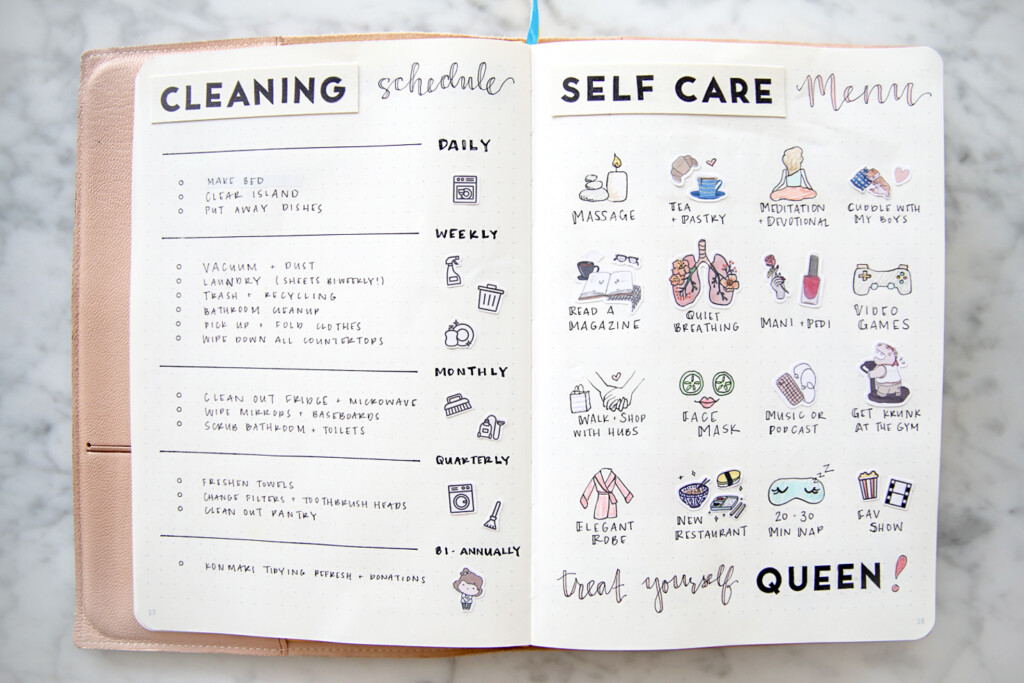 CLEANING schedule
DAILY
MAKE BED
CLEAR ISLAND
PUT AWAY DISHES
WEEKLY
VACUUM + DUST
LAUNDRY (SHEETS BIWEEKLY!)
TRASH + RECYCLING
BATHROOM CLEANUP
PICK UP + FOLD CLOTHES
WIPE DOWN ALL COUNTERTOPS
MONTHLY
CLEAN OUT FRIDGE + MICROWAVE
WIPE MIRRORS + BASEBOARDS
SCRUB BATHROOM + TOILETS
QUARTERLY
FRESHEN TOWELS
CHANGE FILTERS + TOOTHBRUSH HEADS
CLEAN OUT PANTRY
BI-ANNUALLY
KONMARI TIDYING REFRESH + DONATIONS
SELF CARE Menu
MASSAGE
TEA
+ PASTRY
MEDITATION
+ DEVOTIONAL
CUDDLE WITH
MY BOYS
READ A
MAGAZINE
QUIET
BREATHING
MANI + PEDI
VIDEO
GAMES
WALK + SHOP
WITH HUBS
FACE
MASK
MUSIC OR
PODCAST
GET KRUNK
AT THE GYM
ELEGANT
ROBE
NEW
RESTAURANT
zzz
20-30
MIN NAP
FAV
SHOW
treat yourself QUEEN!